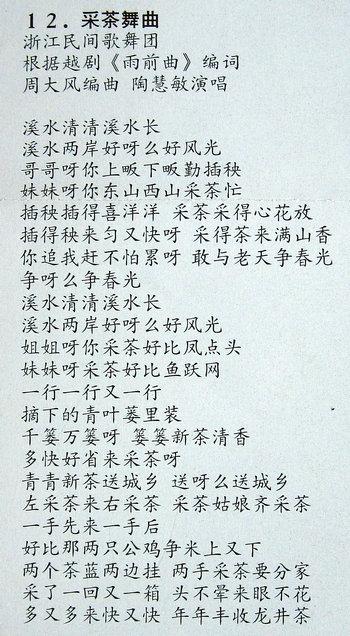 12．采茶舞曲
浙江民间歌舞团
根据越剧《雨前曲》编词
周大风编曲 陶慧敏演唱
溪水清清溪水长
溪水两岸好呀么好风光
哥哥呀你上畈下畈勤插秧
妹妹呀你东山西山采茶忙
插秧插得喜洋洋 采茶采得心花放
插得秧来匀又快呀 采得茶来满山香
你追我赶不怕累呀 敢与老天争春光
争呀么争春光
溪水清清溪水长
溪水两岸好呀么好风光
姐姐呀你采茶好比凤点头
妹妹呀采茶好比鱼跃网
一行一行又一行
摘下的青叶篓里装
千篓万篓呀 篓篓新茶清香
多快好省来采茶呀
青青新茶送城乡 送呀么送城乡
左采茶来右采茶 采茶姑娘齐采茶
一手先来一手后
好比那两只公鸡争米上又下
两个茶蓝两边挂 两手采茶要分家
采了一回又一箱 头不晕来眼不花
多又多来快又快 年年丰收龙井茶